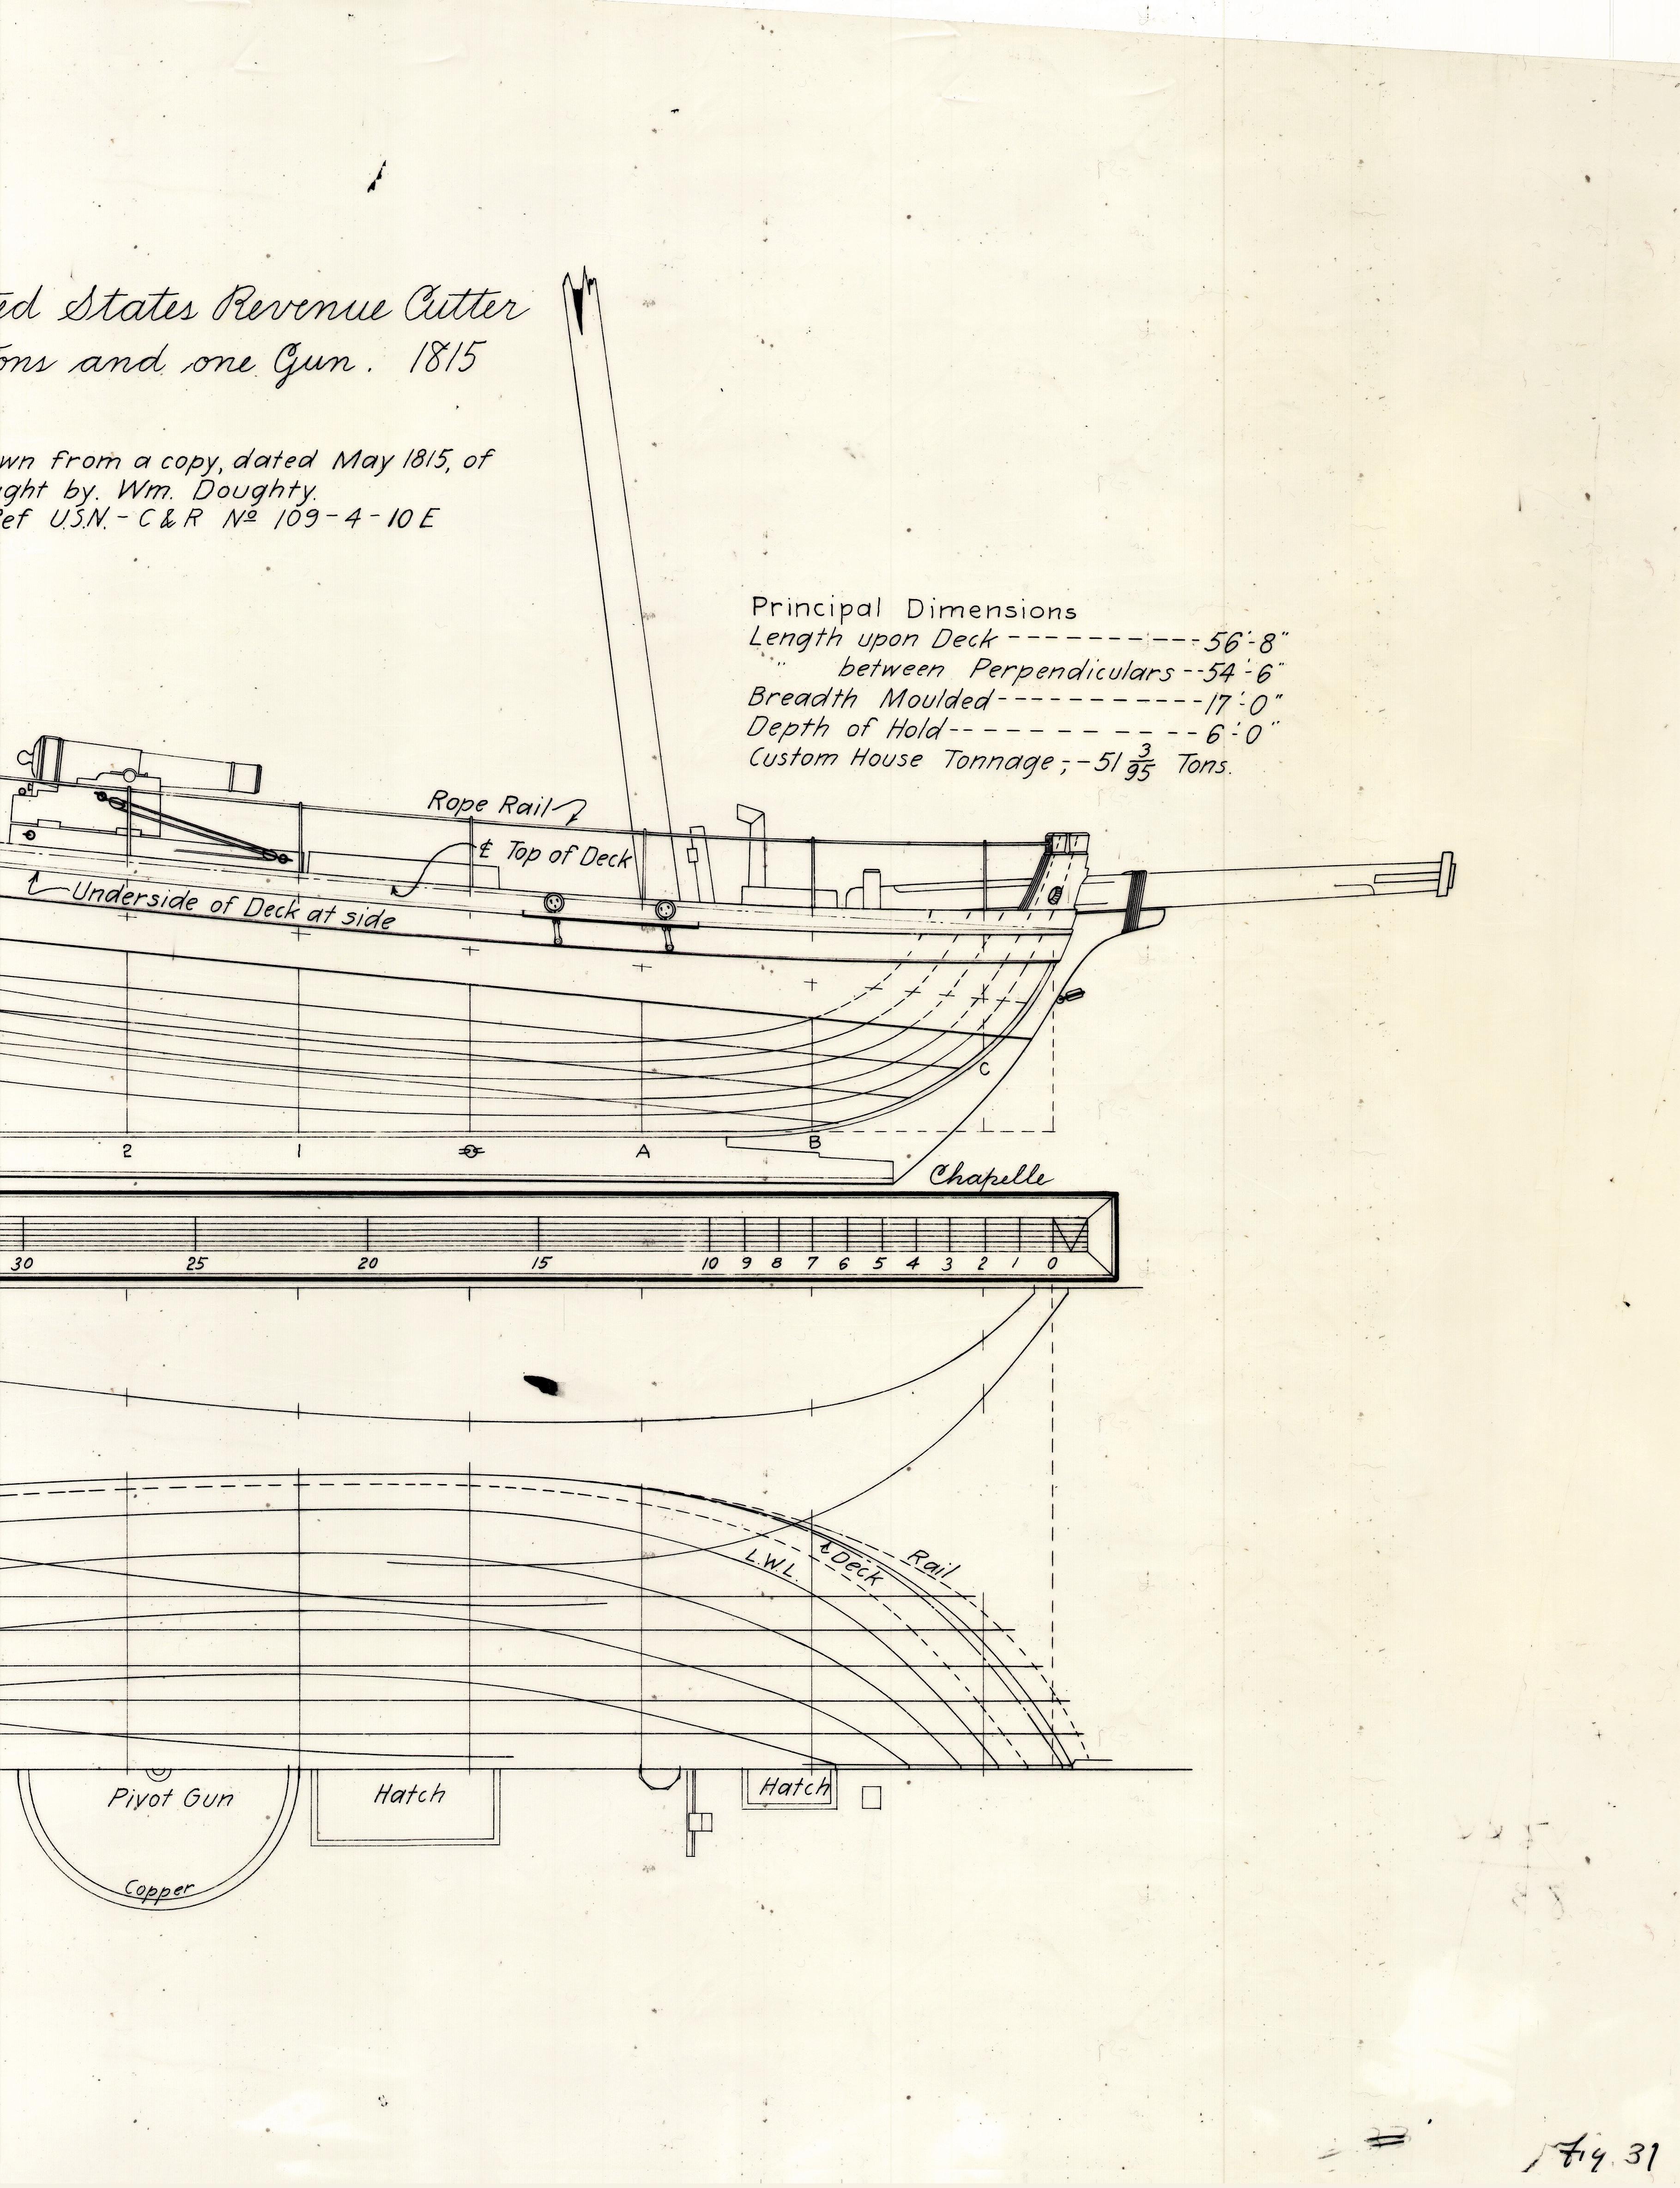 ed States Revenue Cutter
ons and one Gun. 1815
wn from a copy, dated May 1815, of
ght by. Wm. Doughty.
Ref U.S.N. - C & R Nº 109-4-10 E
Principal Dimensions
Length upon Deck ---------- 56'-8"
" between Perpendiculars -- 54'-6"
Breadth Moulded ----------- 17'-0"
Depth of Hold ---------- 6'-0"
Custom House Tonnage ; - 51 3/95 Tons.
Rope Rail
℄ Top of Deck
Underside of Deck at side
C
2 1 A B
Chapelle
30 25 20 15 10 9 8 7 6 5 4 3 2 1 0
L.W.L. Deck Rail
Pivot Gun Hatch Hatch
Copper
Fig. 31